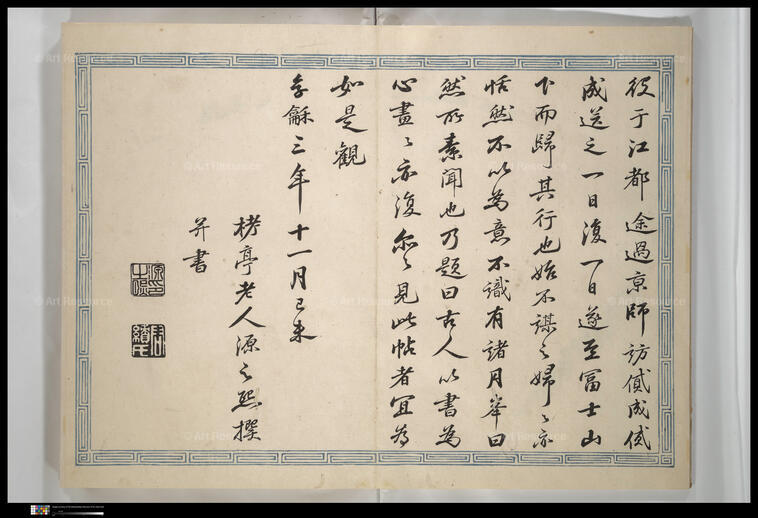 役于江都途過京師訪貸成貸
成送之一日復一日遂至冨士山
下而歸其行也始不謀之婦〻亦
恬然不以為意不識有諸月峯曰
然所素聞也乃題曰古人以書為
心畫〻亦復尔〻見此帖者宜為
如是觀
享龢三年十一月己未
栲亭老人源之熙撰
并書
© Art Resource